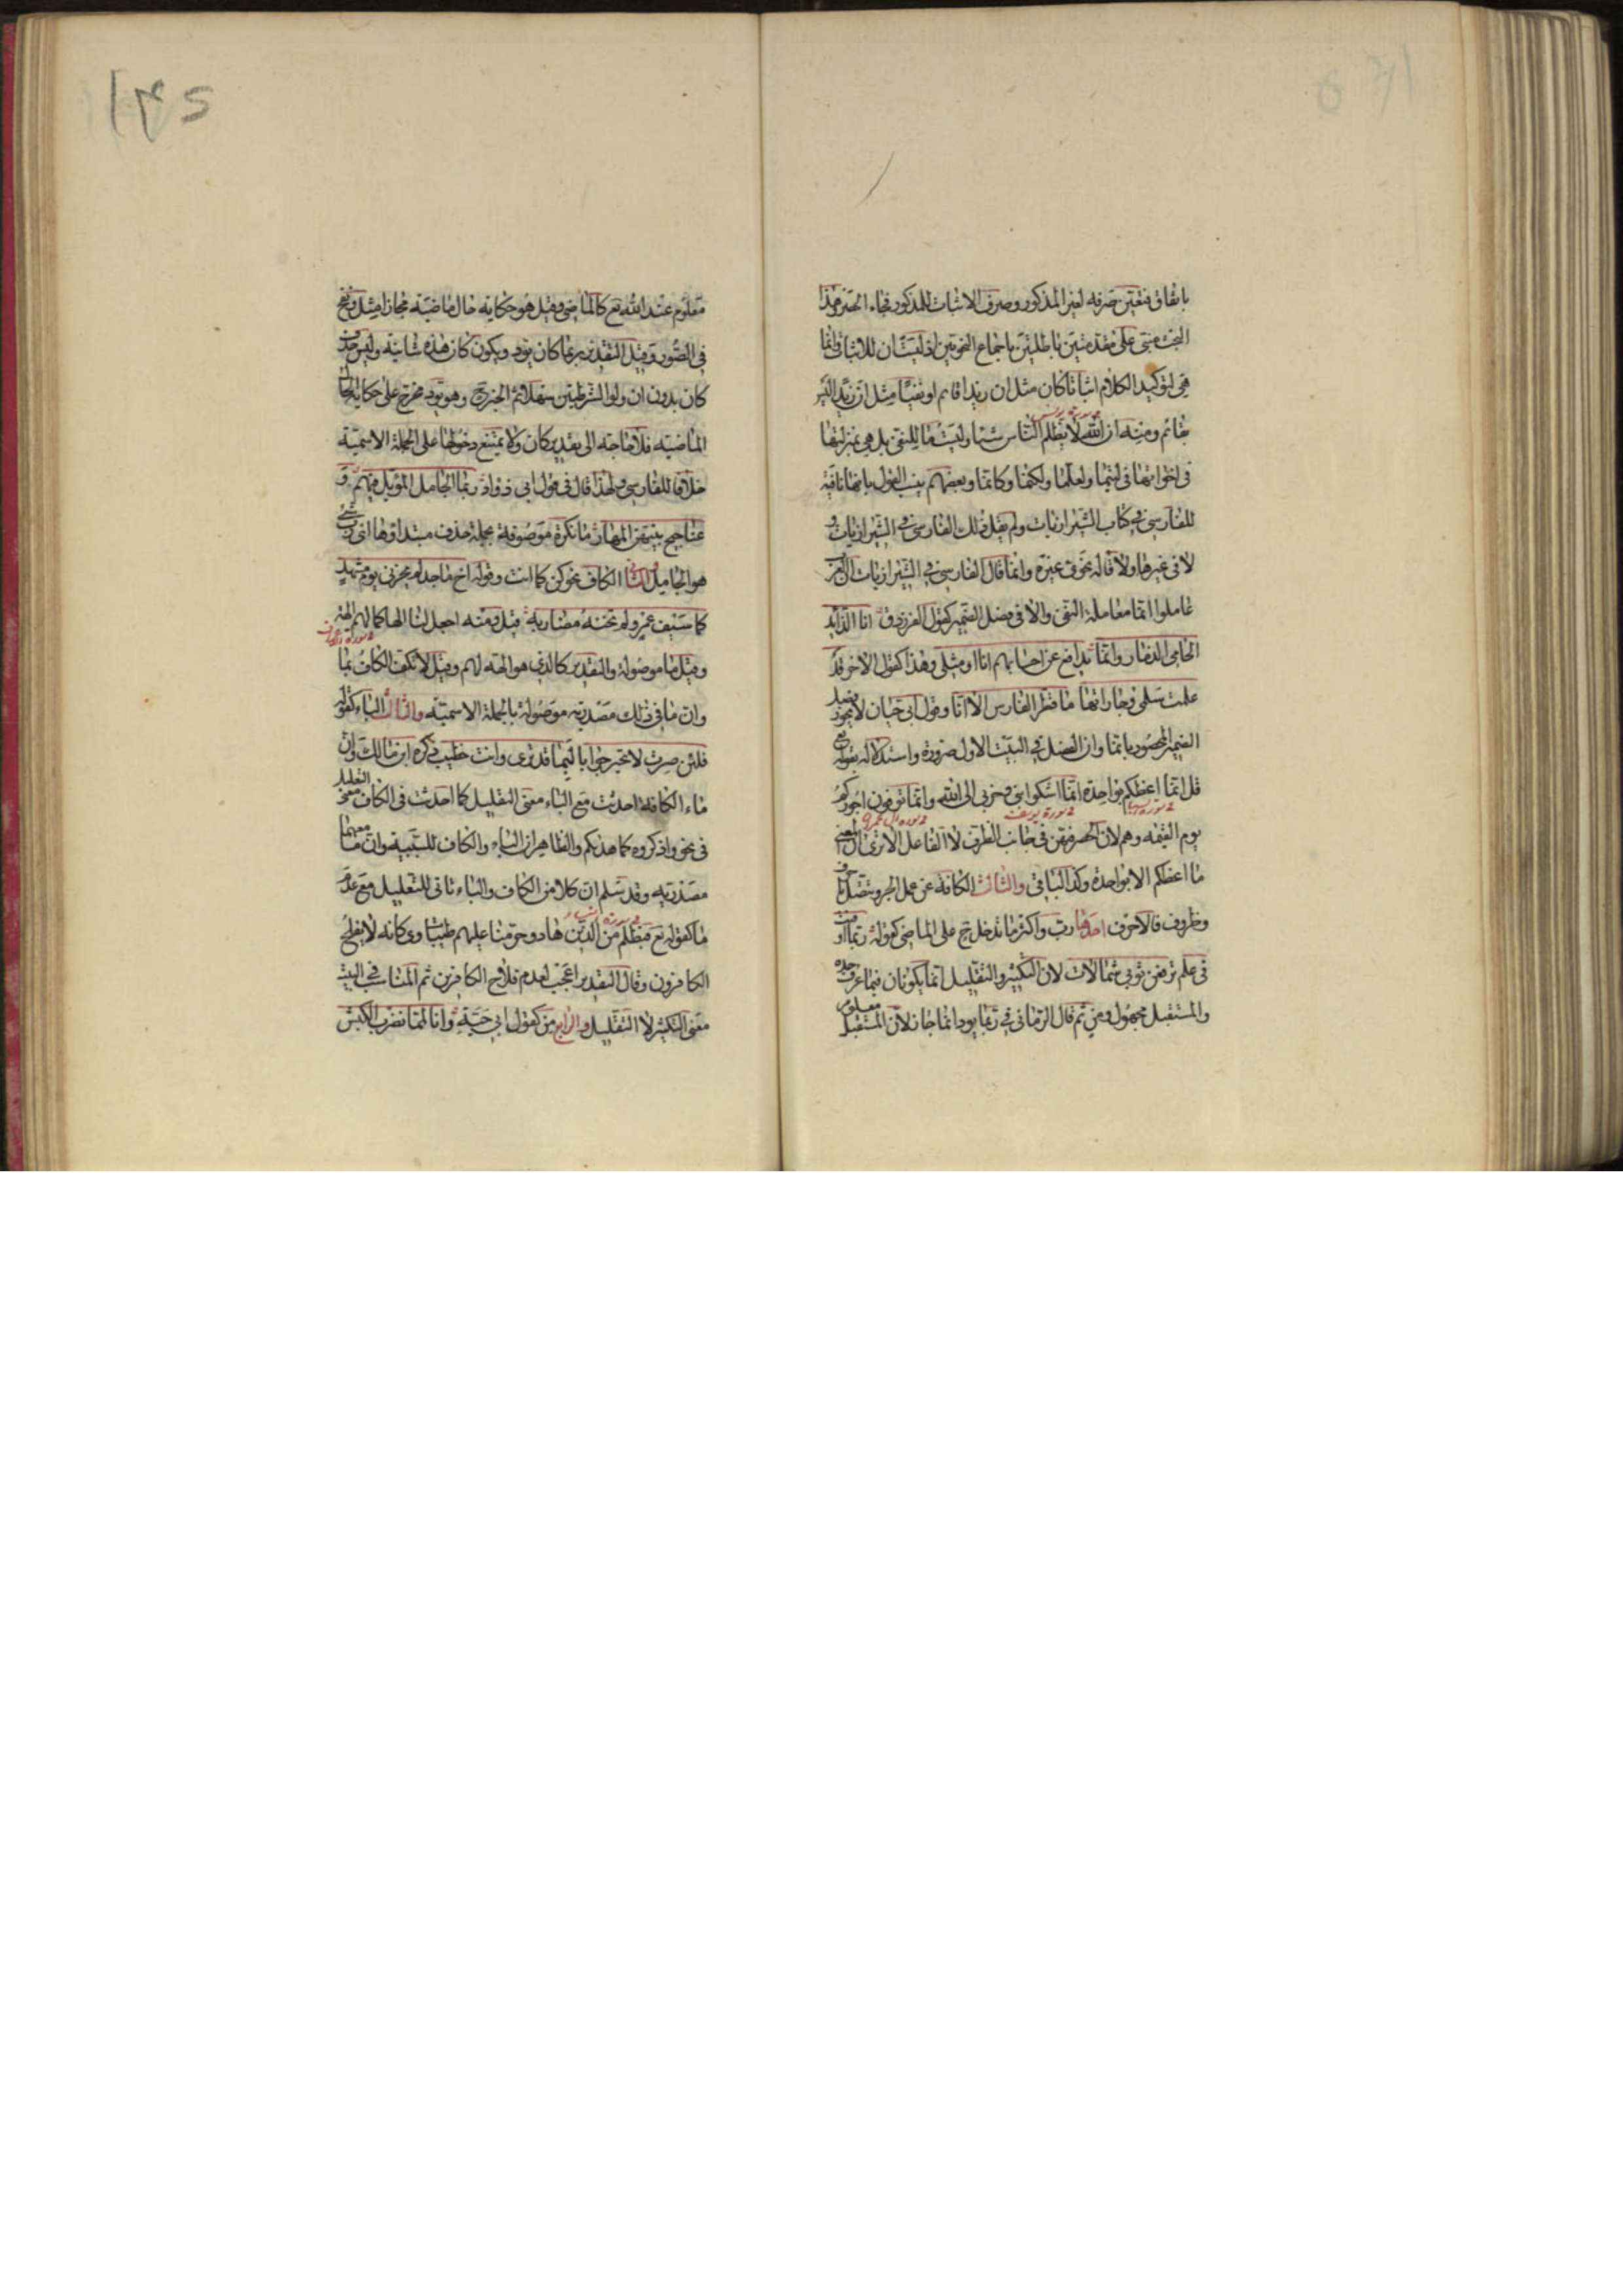 باتفاق فتعين صرفه لغير المذكور وصرف الاثبات للمذكور فجاء الحصر وهذا
البحث مبنى على مقدمتين باطلتين باجماع النحويين اذ ليست ان للاثبات وانما
هى لتوكيد الكلام اثباتا كان مثل ان زيدا قائم او نفيا مثل ان زيدا ليس
بقائم ومنه ان الله لا يظلم الناس شيئا وليست ما للنفى بل هى بمنزلتها
فى اخواتها فى ليتما ولعلما ولكنما وكانما وبعضهم ينسب القول بانها نافية
للفارسى فى كتاب الشيرازيات ولم يقل ذلك الفارسى فى الشيرازيات و
لا فى غيرها ولا قاله نحوى غيره وانما قال الفارسى فى الشيرازيات ان العرب
عاملوا انما معاملة النفى والا فى فصل الضمير كقول الفرزدق انا الذائد
الحامى الذمار وانما يدافع عن احسابهم انا او مثلى وهذا كقول الاخر قد
علمت سلمى وجاراتها ما قطر الفارس الا انا وقول ابى حيان لا يجوز فصل
الضمير المحصور بانما وان الفصل فى البيت الاول ضرورة واستدلاله بقوله تع
قل انما اعظكم بواحدة انما اشكوا بثى وحزنى الى الله وانما توفون اجوركم
يوم القيمة وهم لان الحصر فيهن فى جانب الظرف لا الفاعل الا ترى ان المعنى
ما اعظكم الا بواحدة وكذا الباقى والثالث الكافة عن عمل الجر وتتصل باحرف
وظروف فالاحرف احدها رب واكثر ما تدخل ح على الماضى كقوله ربما اوفيت
فى علم ترفعن ثوبى شمالات لان التكثير والتقليل انما يكونان فيما عرف حده
والمستقبل مجهول ومن ثم قال الرمانى فى ربما يود انما جاز لان المستقبل معلوم
معلوم عند الله تع كالماضى وقيل هو حكاية حال ماضية مجازا مثل ونفخ
فى الصور وقيل التقدير ربما كان يود ويكون كان هذه شانية وليس حذف
كان بدون ان ولو الشرطيتين سهلا ثم الخبر ح وهو يود مخرج على حكاية الحال
الماضية فلا حاجة الى تقدير كان ولا يمتنع دخولها على الجملة الاسمية
خلافا للفارسى ولهذا قال فى قول ابى دواد ربما الجامل المؤبل فيهم و
عناجيج بينهن المهار ما نكرة موصوفة بجملة حذف مبتداؤها اى رب شئ
هو الجامل الثانى الكاف نحو كن كما انت وقوله اخ ماجد لم يخزنى يوم مشهد
كما سيف عمرو لم تخنه مضاربه قيل ومنه اجعل لنا الها كما لهم الهة
وقيل ما موصولة والتقدير كالذى هو الهة لهم وقيل لا تكف الكاف بما
وان ما فى ذلك مصدرية موصولة بالجملة الاسمية والثالث الباء كقوله
فلئن صرت لا تحير جوابا لبما قد ترى وانت خطيب ذكره ابن مالك وان
ماء الكافة احدثت مع الباء معنى التقليل كما احدثت فى الكاف معنى التعليل
فى نحو واذكروه كما هديكم والظاهر ان الباء والكاف للسببية وان ما معهما
مصدرية وقد سلم ان كلا من الكاف والباء تاتى للتعليل مع عدم
ما كقوله تع فبظلم من الذين هادوا حرمنا عليهم طيبات وى كانه لا يفلح
الكافرون وقال التقدير اعجب لعدم فلاح الكافرين ثم المناسب فى البيت
معنى التكثير لا التقليل والرابع من كقول ابى حية وانا لمما نضرب الكبش